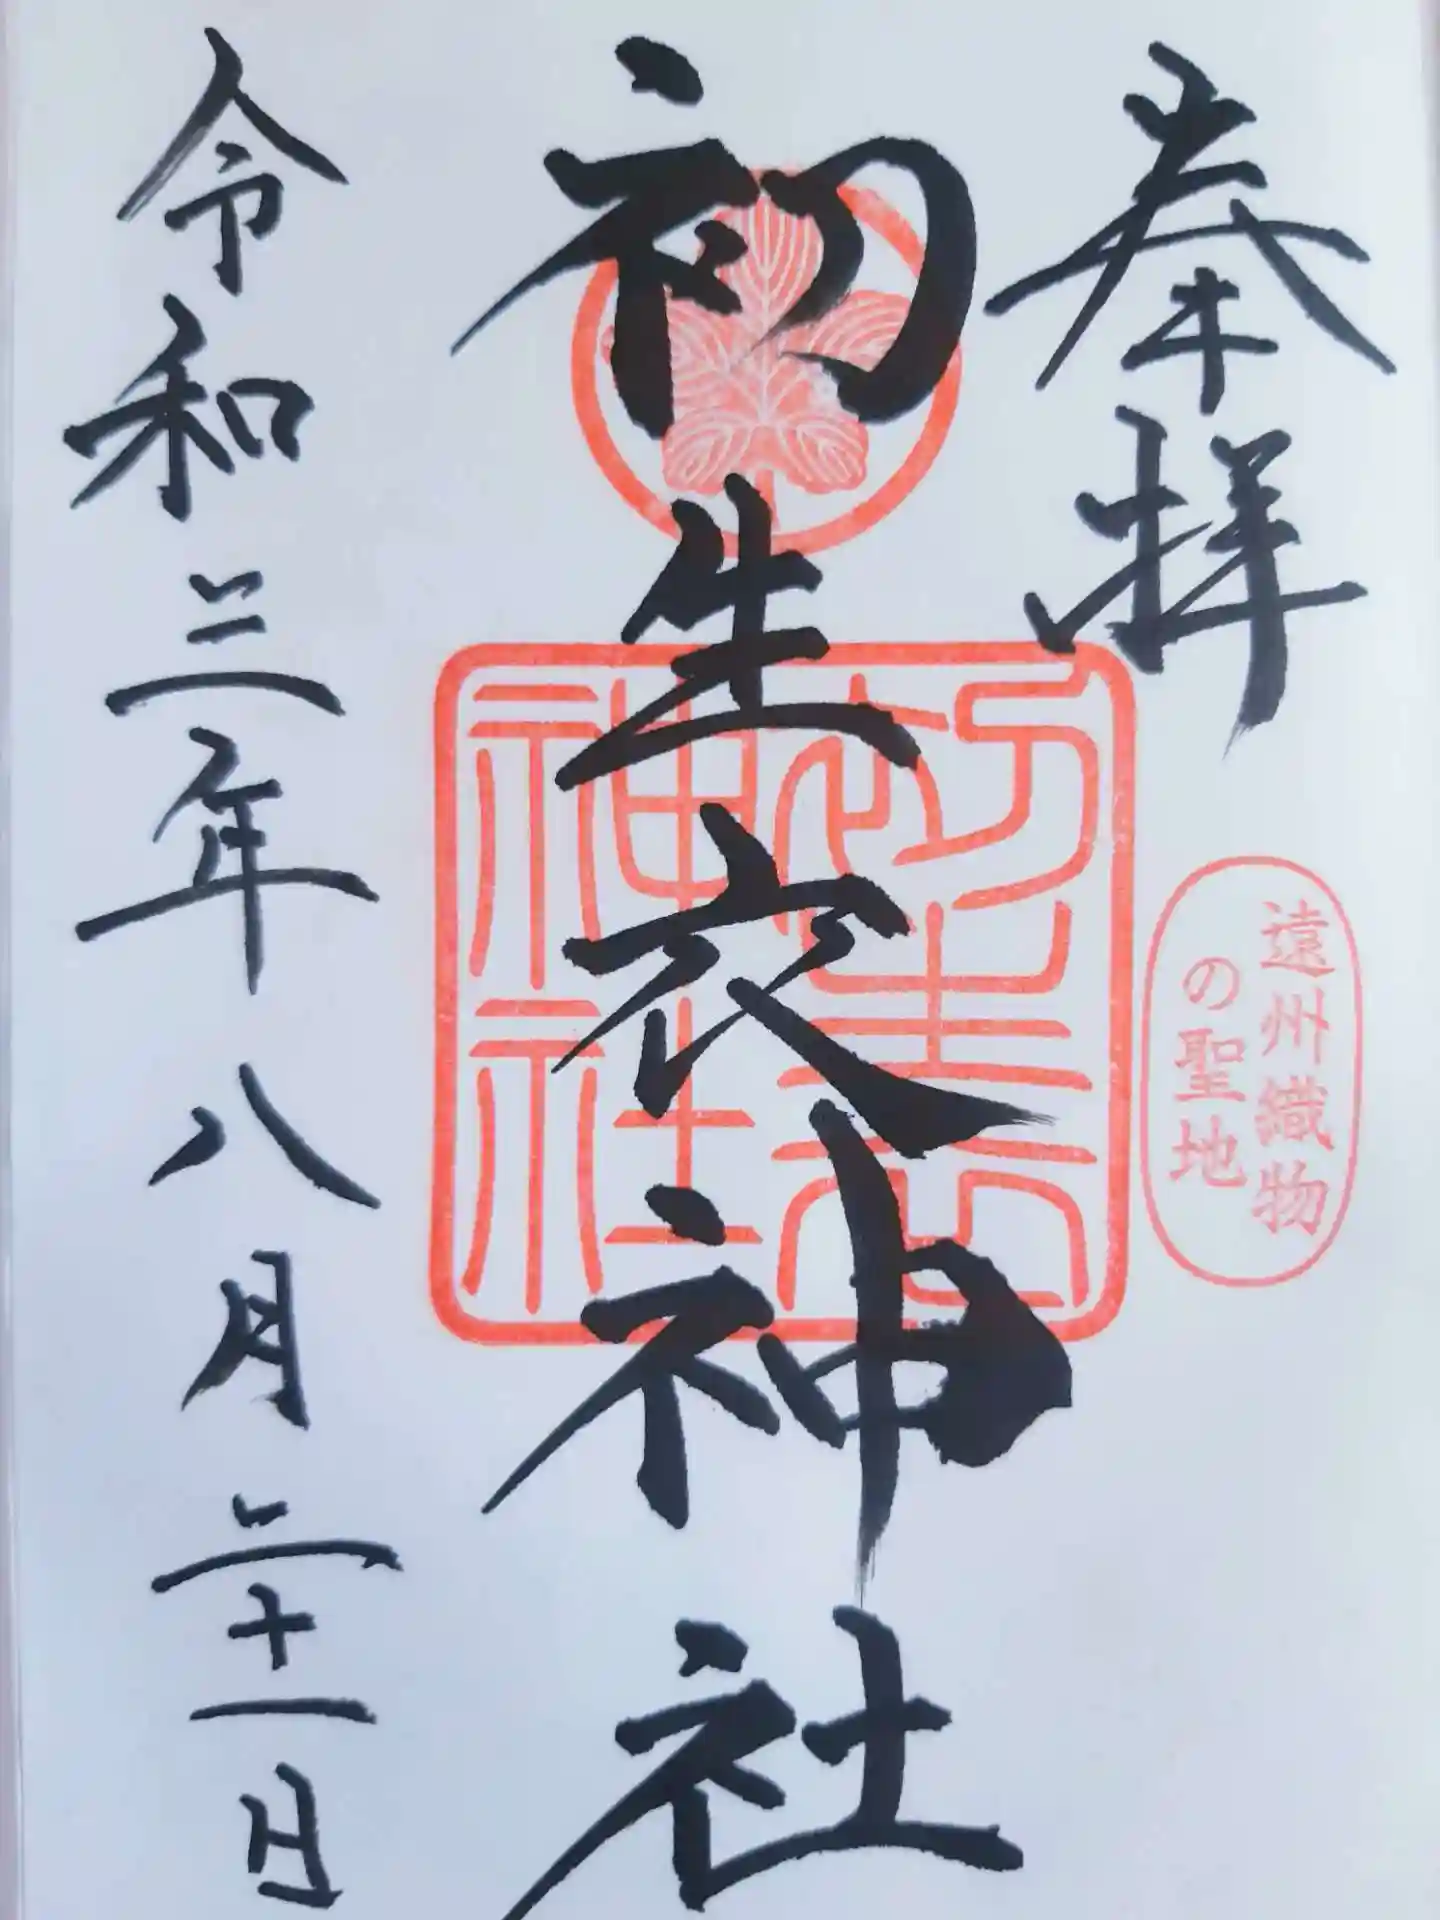 奉拝
遠州織物
の聖地
初生衣神社
初生衣
神社
令和三年八月二十一日